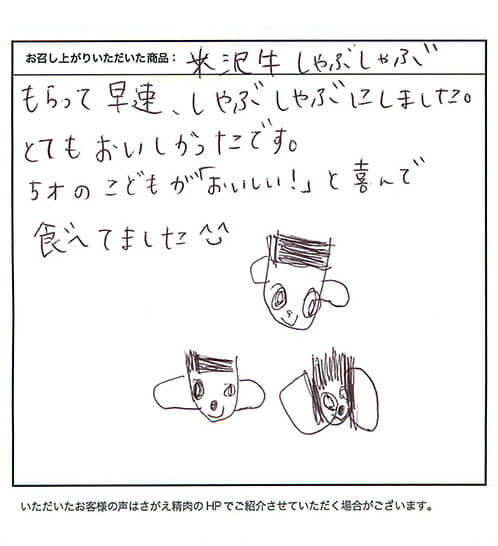 お召し上がりいただいた商品： 米沢牛 しゃぶしゃぶ
もらって早速、しゃぶしゃぶにしました。
とてもおいしかったです。
5才のこどもが「おいしい！」と喜んで
食べてました^^
いただいたお客様の声はさがえ精肉のHPでご紹介させていただく場合がございます。